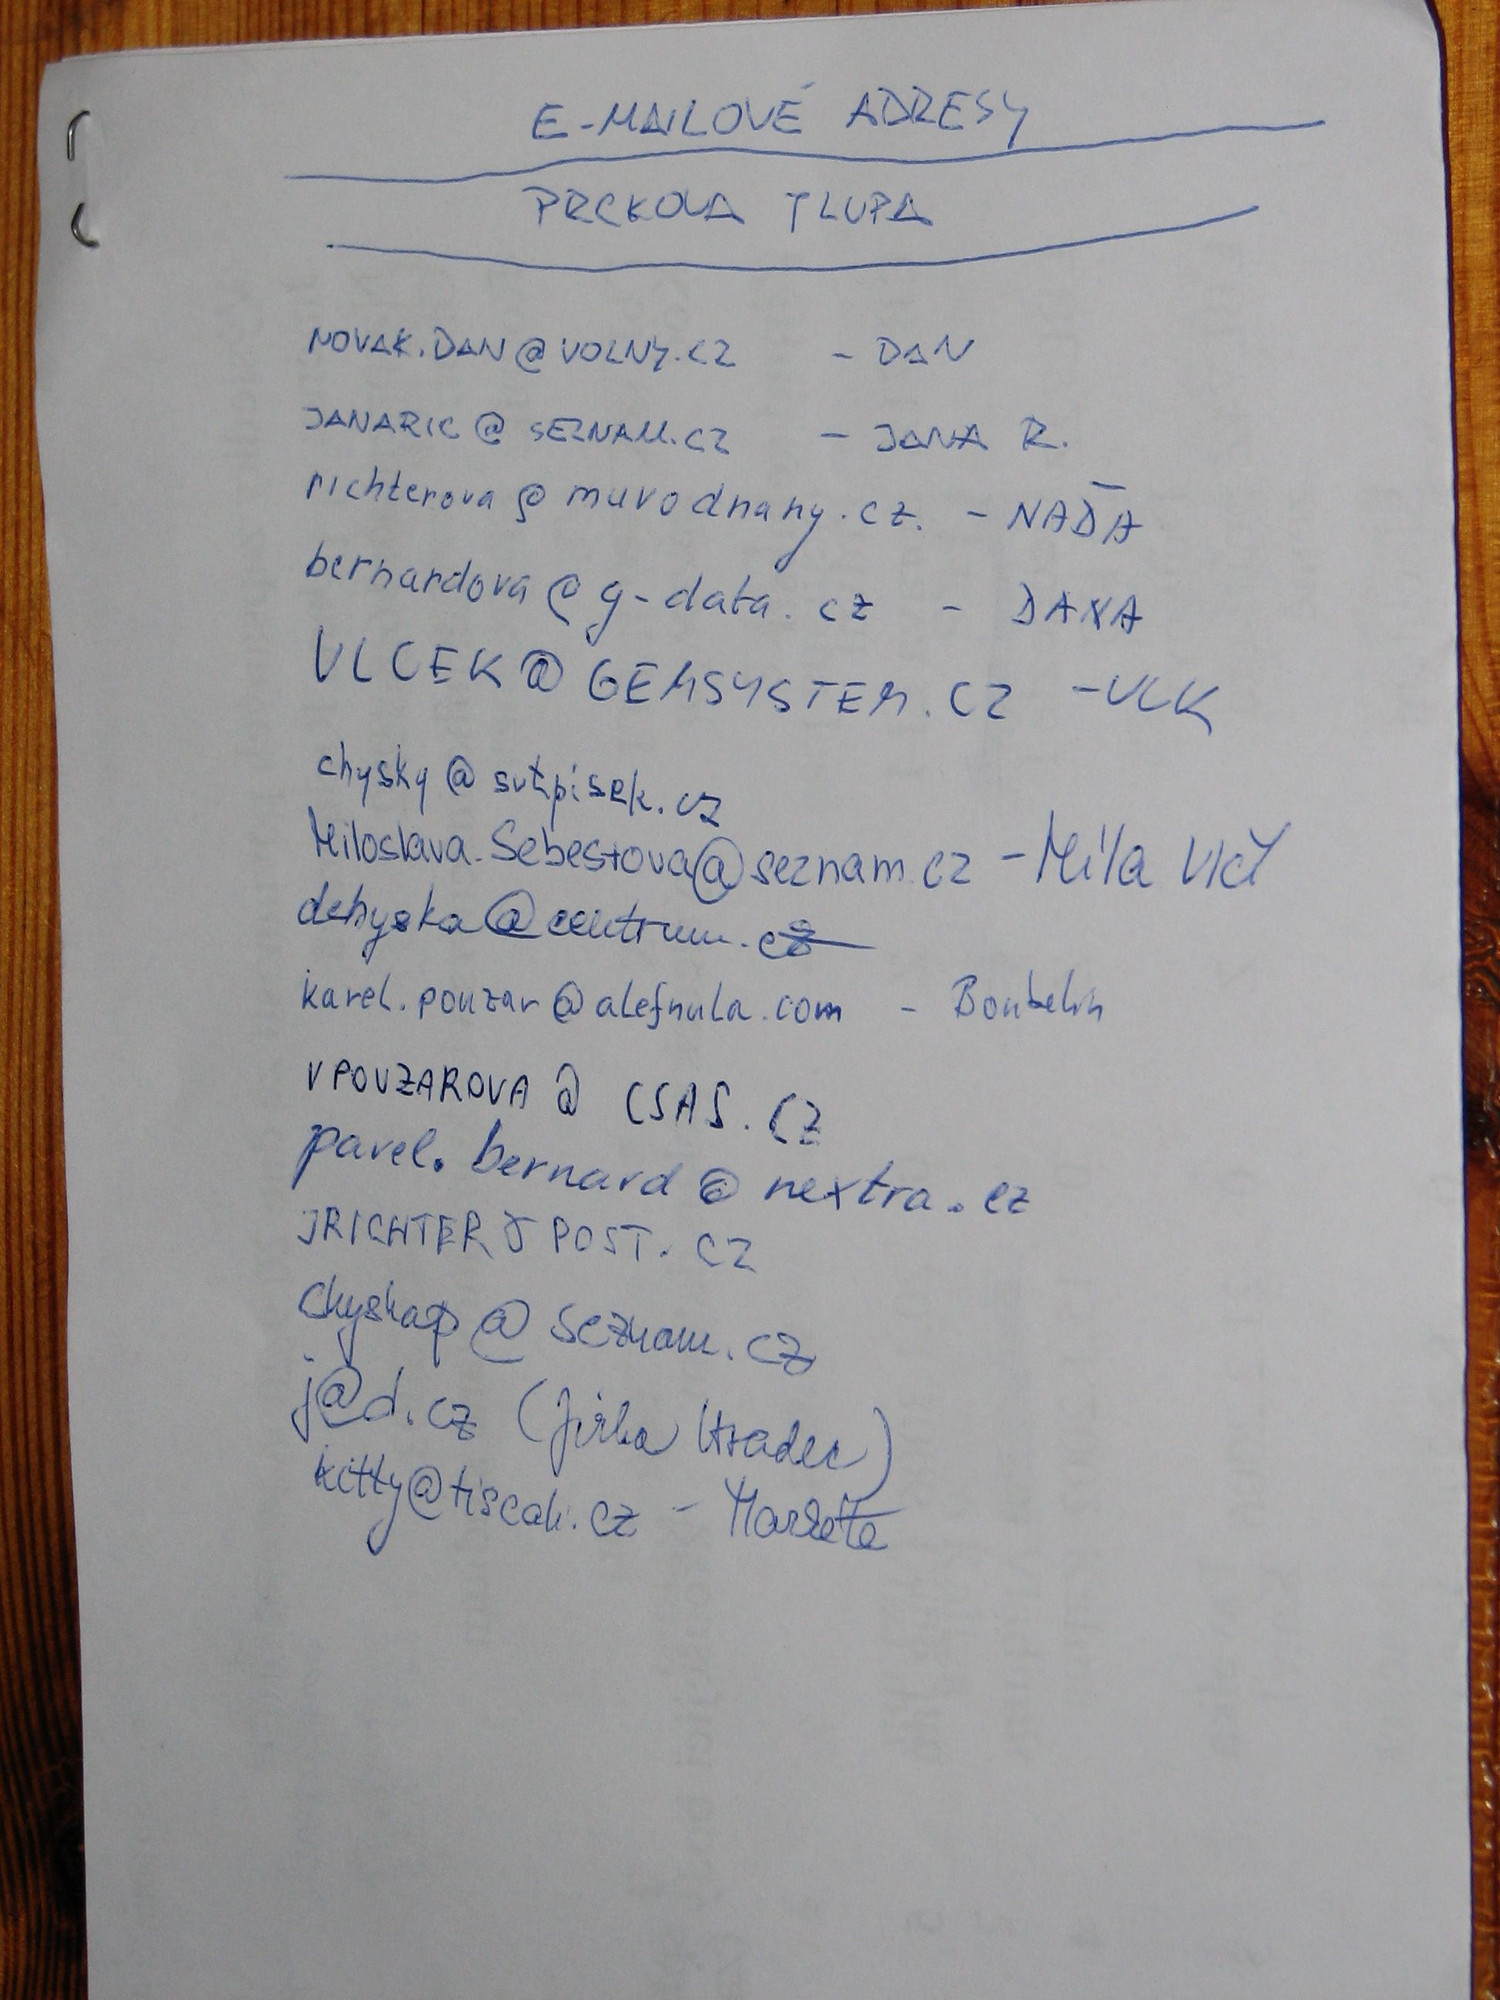 E-MAILOVÉ ADRESY
PRCKOVA TLUPA
NOVAK.DAN@VOLNY.CZ - DAN
JANARIC@SEZNAM.CZ - JANA R.
richterova@muvodnany.cz. - NAĎA
bernardova@g-data.cz - DANA
VLCEK@GEMSYSTEM.CZ - VLK
chysky@svtpisek.cz
Miloslava.Sebestova@seznam.cz - Míla Vlčí
dchyska@centrum.cz
karel.pouzar@alefnula.com - Boubelín
VPOUZAROVA@CSAS.CZ
pavel.bernard@nextra.cz
JRICHTER@POST.CZ
chyskap@seznam.cz
j@d.cz (Jirka Hradec)
kitty@tiscali.cz - Markéta